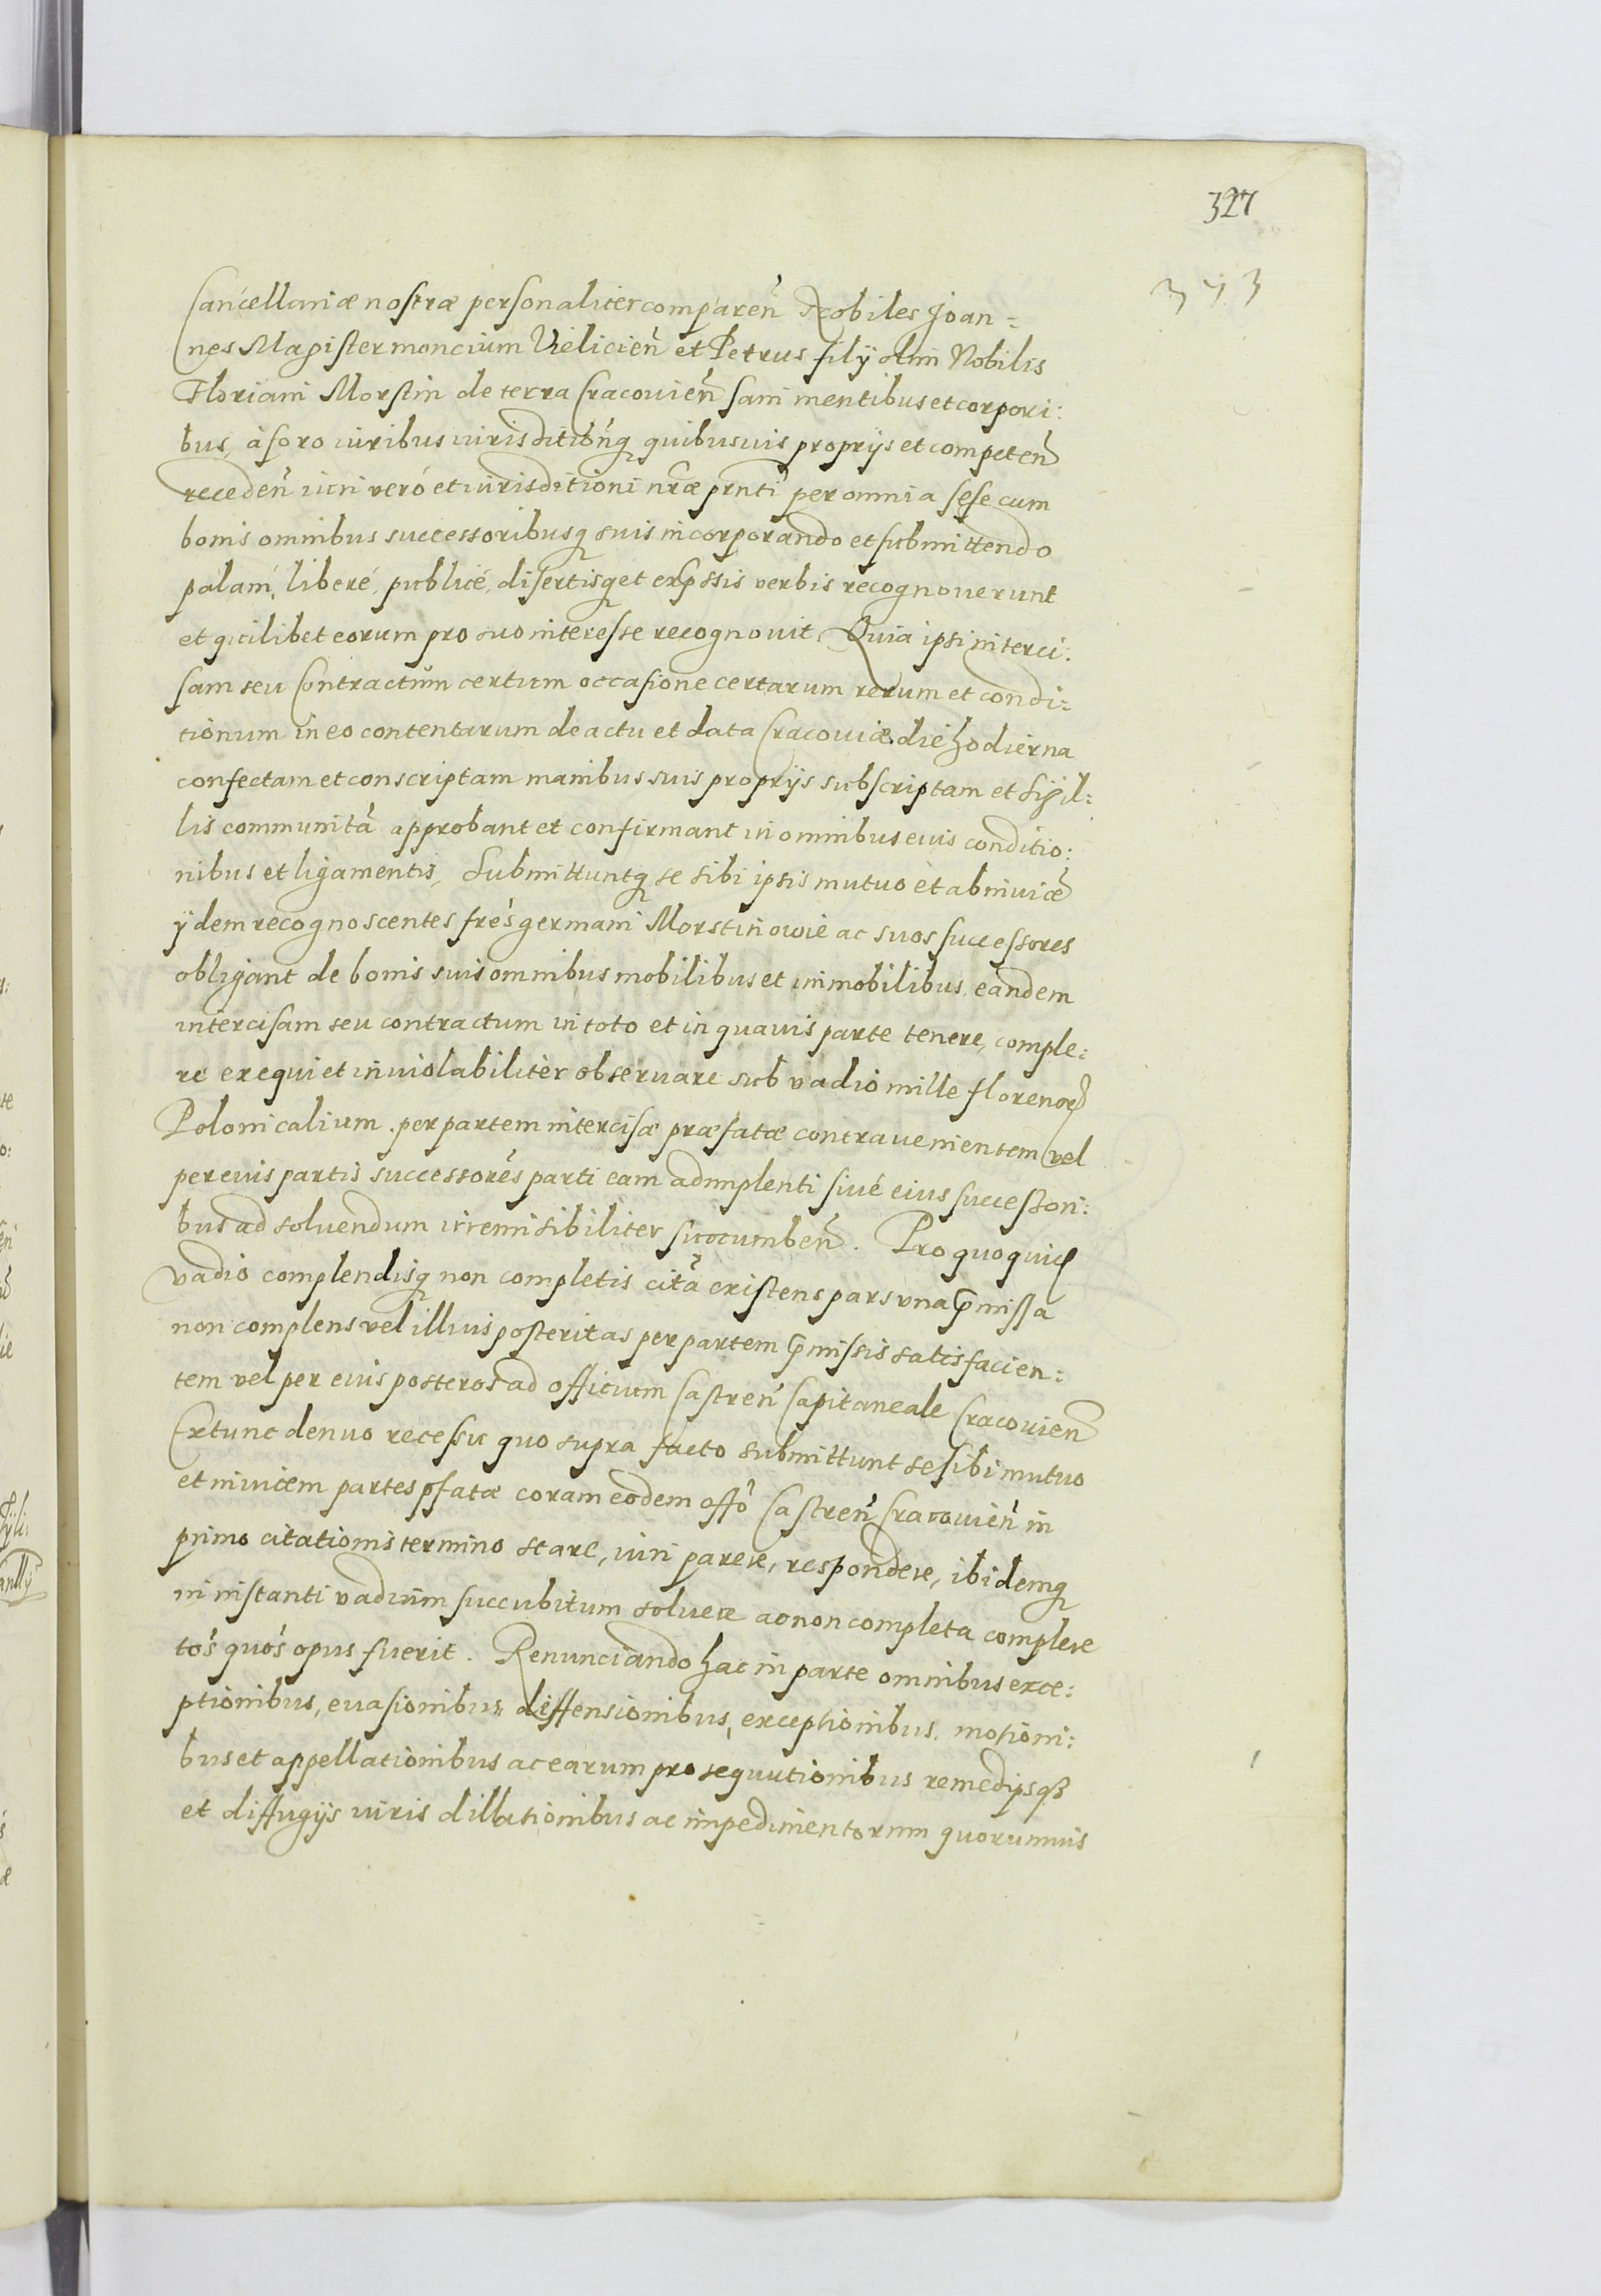 327
343
Cancellariæ nostræ personaliter comparen̄ Nobiles Joan=
nes Magister moncium Vielicien̄ et Petrus filÿ olim Nobilis
Floriani Morstin de terra Cracovien̄ sani mentibus et corpori:
bus, à foro iuribus iurisditionq̃ quibusuis proprijs et competen̄
receden̄ iuri veró et iurisditioni nr̃æ prn̄ti per omnia sese cum
bonis omnibus successoribusq̃ suis incorporando et submittendo
palam, liberé, publicé, disertisq̃ et exp̃ssis verbis recognouerunt
et quilibet eorum pro suo interesse recognouit. Quia ipsi interci:
sam seu Contractum certum occasione certarum rerum et condi=
tionum in eo contentarum de actu et data Cracouiæ die hodierna
confectam et conscriptam manibus suis proprijs subscriptam et sigil=
lis communitā approbant et confirmant in omnibus euis conditio:
nibus et ligamentis, Submittuntq̃ se sibi ipsis mutuo et abinuicē
ÿdem recognoscentes frẽs germani Morstinowie ac suos successores
obligant de bonis suis omnibus mobilibus et inmobilibus, eandem
intercisam seu contractum in toto et in quauis parte tenere, comple:
re exequi et inuiolabiliter obseruare sub vadio mille florenoꝝ
Polonicalium per partem intercisæ præfatæ contrauenientem vel
per euis partis successores parti eam adimplenti siué eius successori:
bus ad soluendum irremisibiliter succumben̄. Pro quo quidē
vadio complendisq̃ non completis citā existens pars vna p̃missa
non complens vel illius posteritas per partem p̃missis satisfacien:
tem vel per euis posteros ad officium Castren̄ Capitaneale Cracovien̄
Extunc denuo recessu quo supra facto submittunt se sibi mutuo
et inuicem partes p̃fatæ coram eodem offō Castren̄ Cracovien̄ in
primo citationis termino stare, iuri parere, respondere, ibidemq̃
in instanti vadium succubitum soluere ac non completa complere
tós quós opus fuerit. Renunciando hac in parte omnibus exce:
ptionibus, euasionibus, diffensionibus, exceptionibus, motioni:
bus et appellationibus ac earum prosequutionibus remedijsqꝫ
et diffugijs iuris dillationibus ac impedimentorum quorumuis